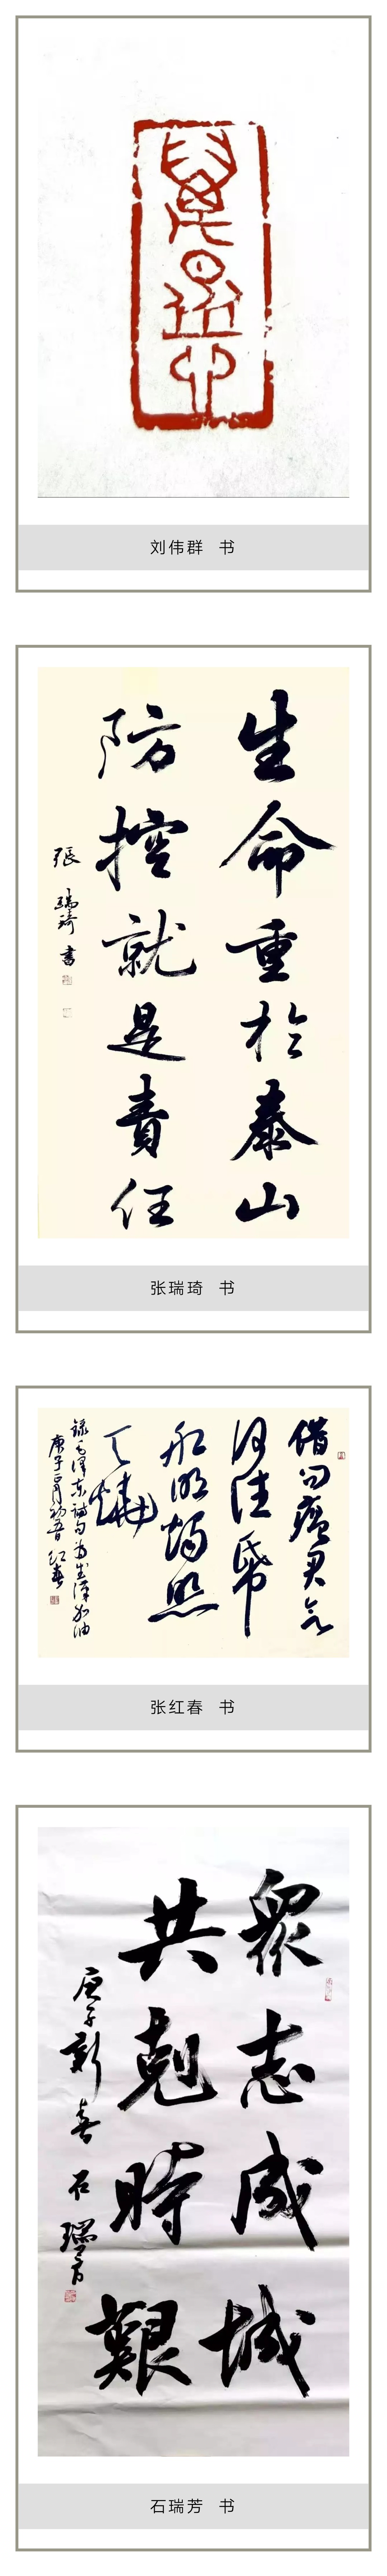 刘伟群 书
生命重於泰山
防控就是責任
張瑞琦書
张瑞琦 书
借问瘟君欲
何往纸
船明烛照
天烧
录毛泽东诗句为武汉加油
庚子正月初五日红春
张红春 书
眾志成城
共剋時艱
庚子新春石瑞芳
石瑞芳 书